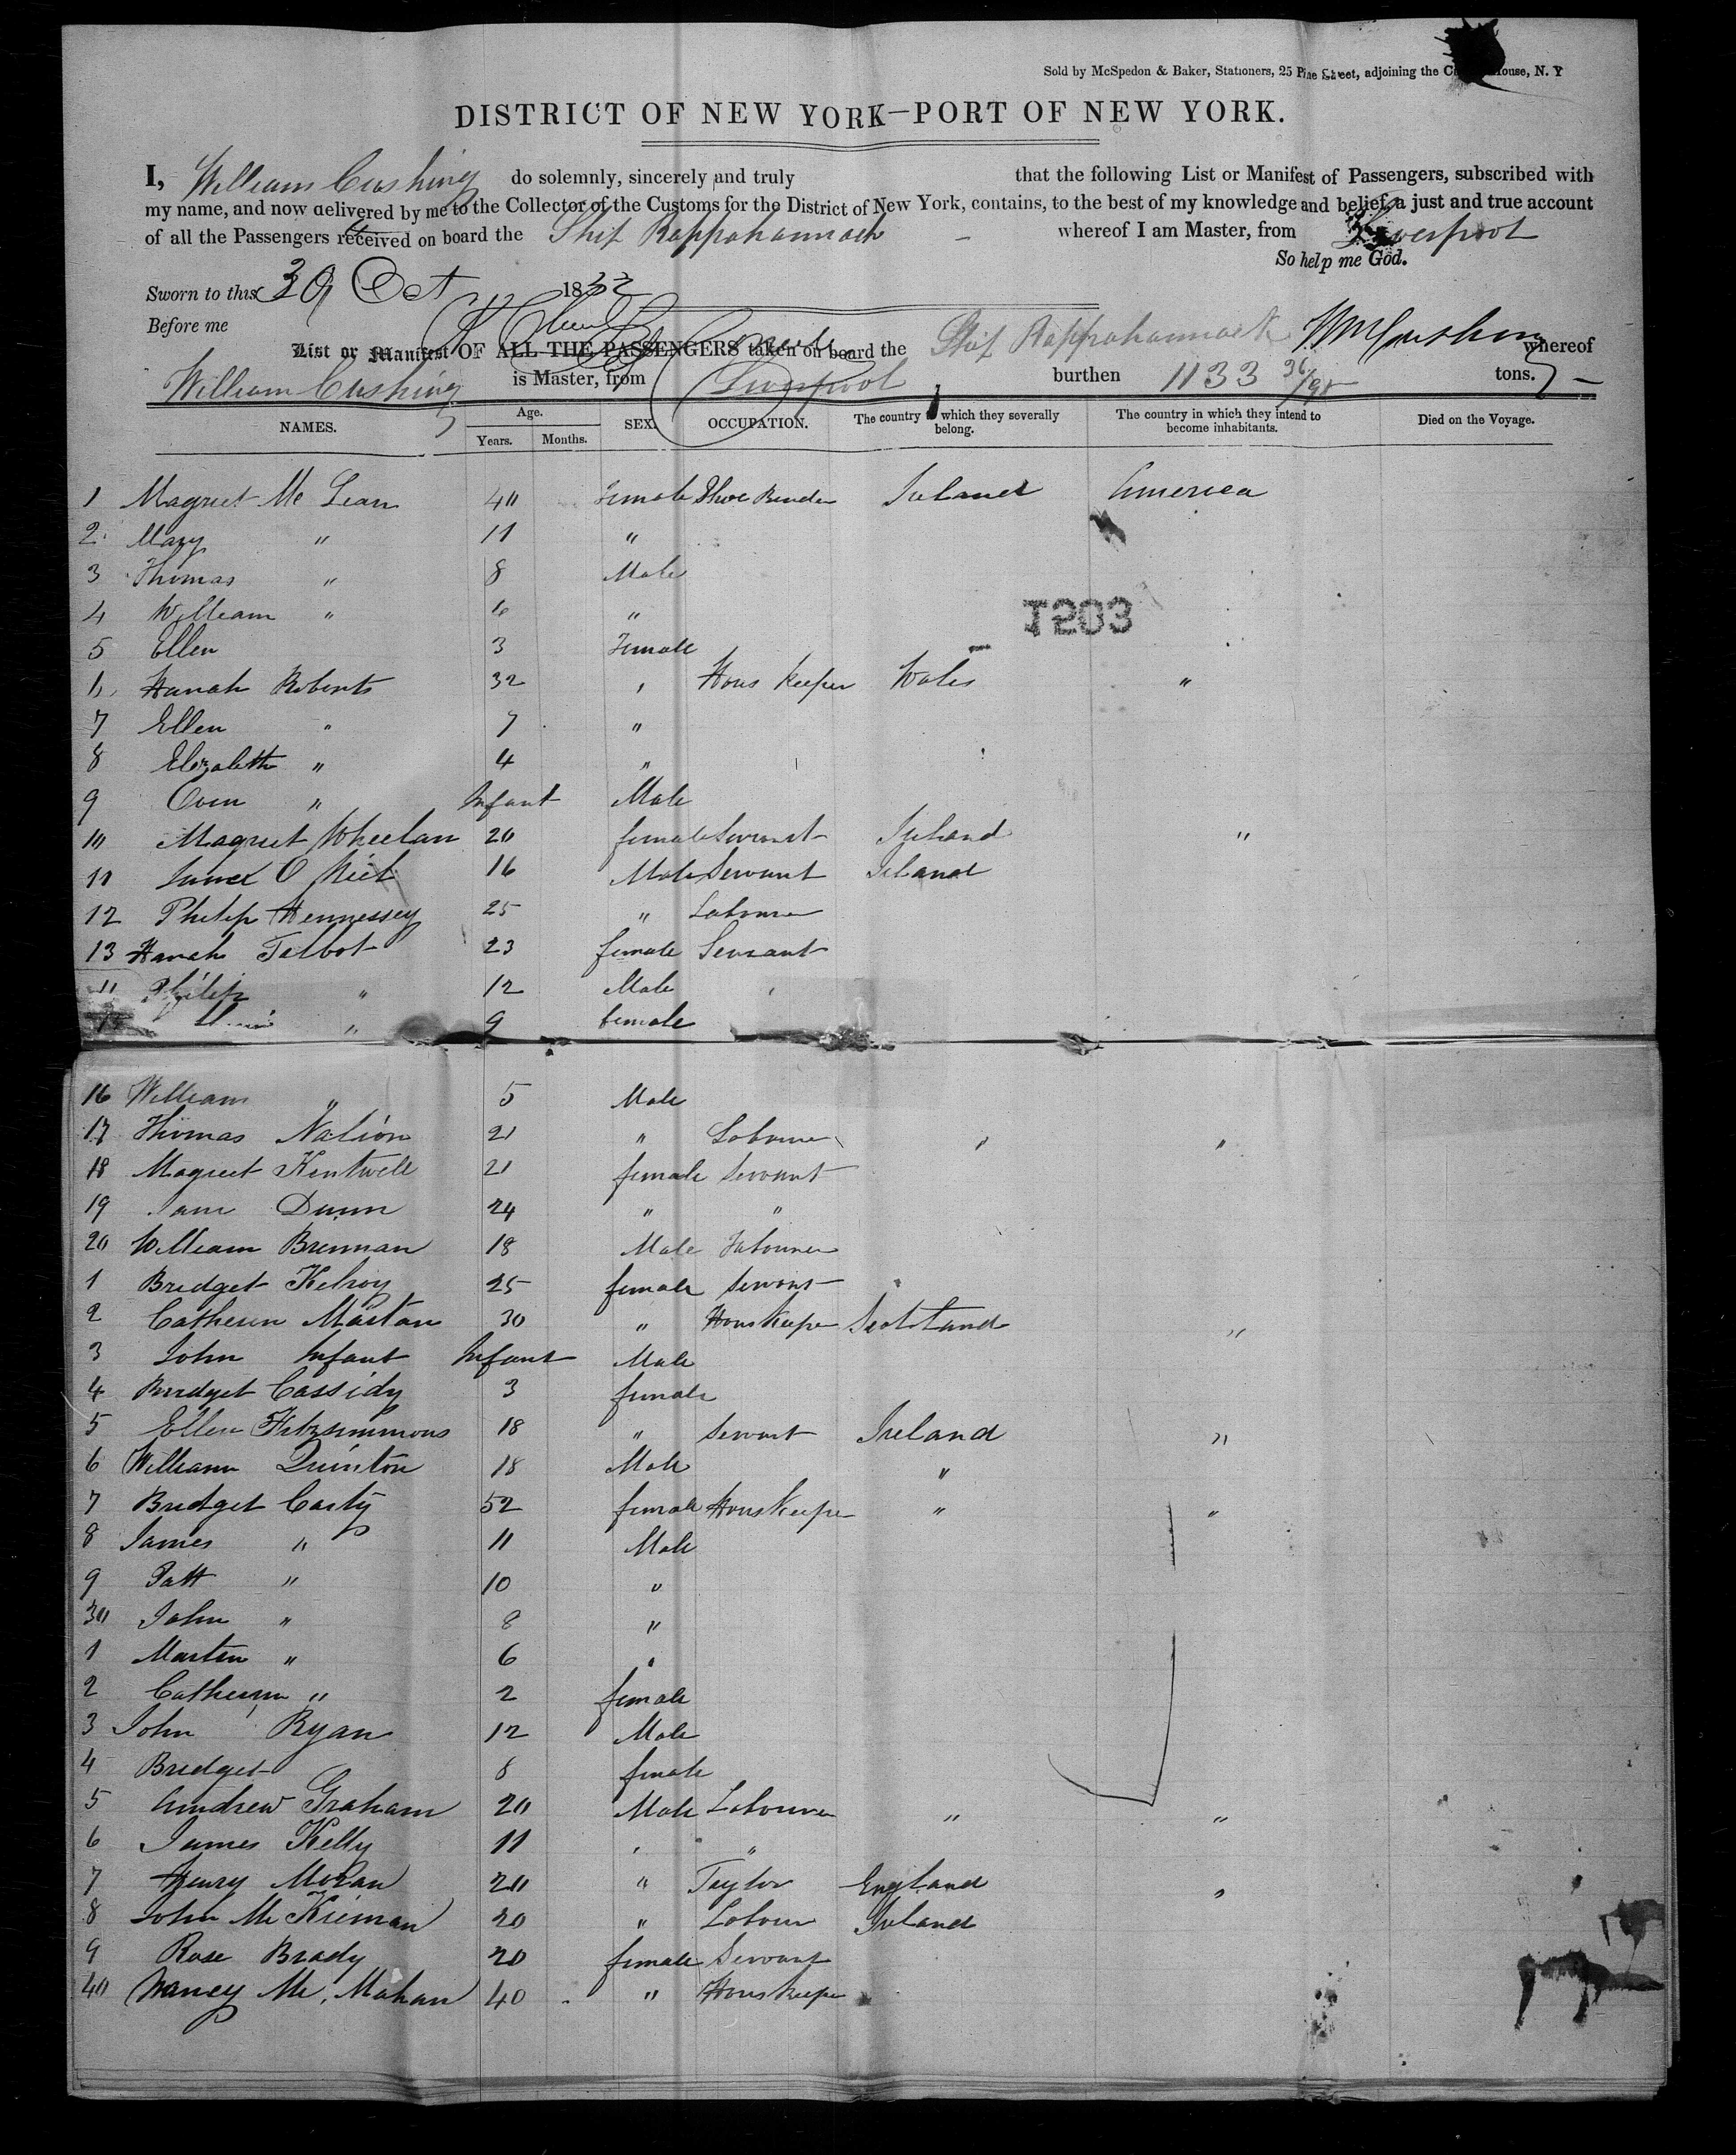 Sold by McSpedon & Baker, Stationers, 25 Pine Street, adjoining the House, N. Y
DISTRICT OF NEW YORK—PORT OF NEW YORK.
I, William Cushing do solemnly, sincerely and truly that the following List or Manifest of Passengers, subscribed with
my name, and now delivered by me to the Collector of the Customs for the District of New York, contains, to the best of my knowledge and belief, a just and true account
of all the Passengers received on board the Ship Rappahannock whereof I am Master, from Liverpool
So help me God.
Sworn to this 30 Oct 1852
Before me
Wm Cushing
List or Manifest OF ALL THE PASSENGERS taken on board the Ship Rappahannock whereof
William Cushing is Master, from Liverpool burthen 1133 tons.
NAMES. Age. Years. Months. SEX. OCCUPATION. The country to which they severally belong. The country in which they intend to become inhabitants. Died on the Voyage.
1 Magret Mc Lean 40 Female Shoe Binder Ireland America
2 Mary " 11 "
3 Thomas " 8 Male
4 William " 6 "
1203
5 Ellen 3 Female
6 Hanah Roberts 32 " Hous Keeper Wales "
7 Ellen " 7 "
8 Elizabeth " 4 "
9 Owen " Infant Male
10 Magret Wheelan 20 female Servant Ireland "
11 James O Neil 16 Male Servant Ireland
12 Philip Hennessey 25 " Labourer
13 Hanah Talbot 23 female Servant
Philip " 12 Male
15 " 9 female
16 William " 5 Male
17 Thomas Nation 21 " Labourer " "
18 Magret Kentwell 21 female Servant
19 Jane Dunn 24 " "
20 William Brennan 18 Male Labourer
1 Bridget Kelroy 25 female Servant
2 Catheren Martan 30 " Hous Keeper Scotland "
3 John Infant Infant Male
4 Bridget Cassidy 3 female
5 Ellen Fitzsimmons 18 " Servant Ireland "
6 William Quinton 18 Male "
7 Bridget Carty 52 female Hous Keeper " "
8 James " 11 Male
9 Patt " 10 "
30 John " 8 "
1 Marten " 6 "
2 Catheren " 2 female
3 John Ryan 12 Male
4 Bridget 8 female
5 Andrew Graham 20 Male Labourer " "
6 James Kelly 11 " "
7 Henry Moran 20 " Taylor England "
8 John Mc Kieman 20 " Labour Ireland
9 Rose Brady 20 female Servant
40 Nancy Mc Mahan 40 " Hous Keeper